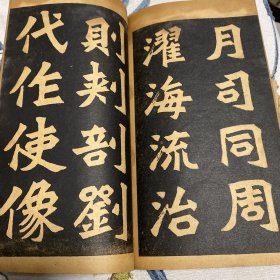 月司同周
濯海流治
則刾剖劉
代作使像